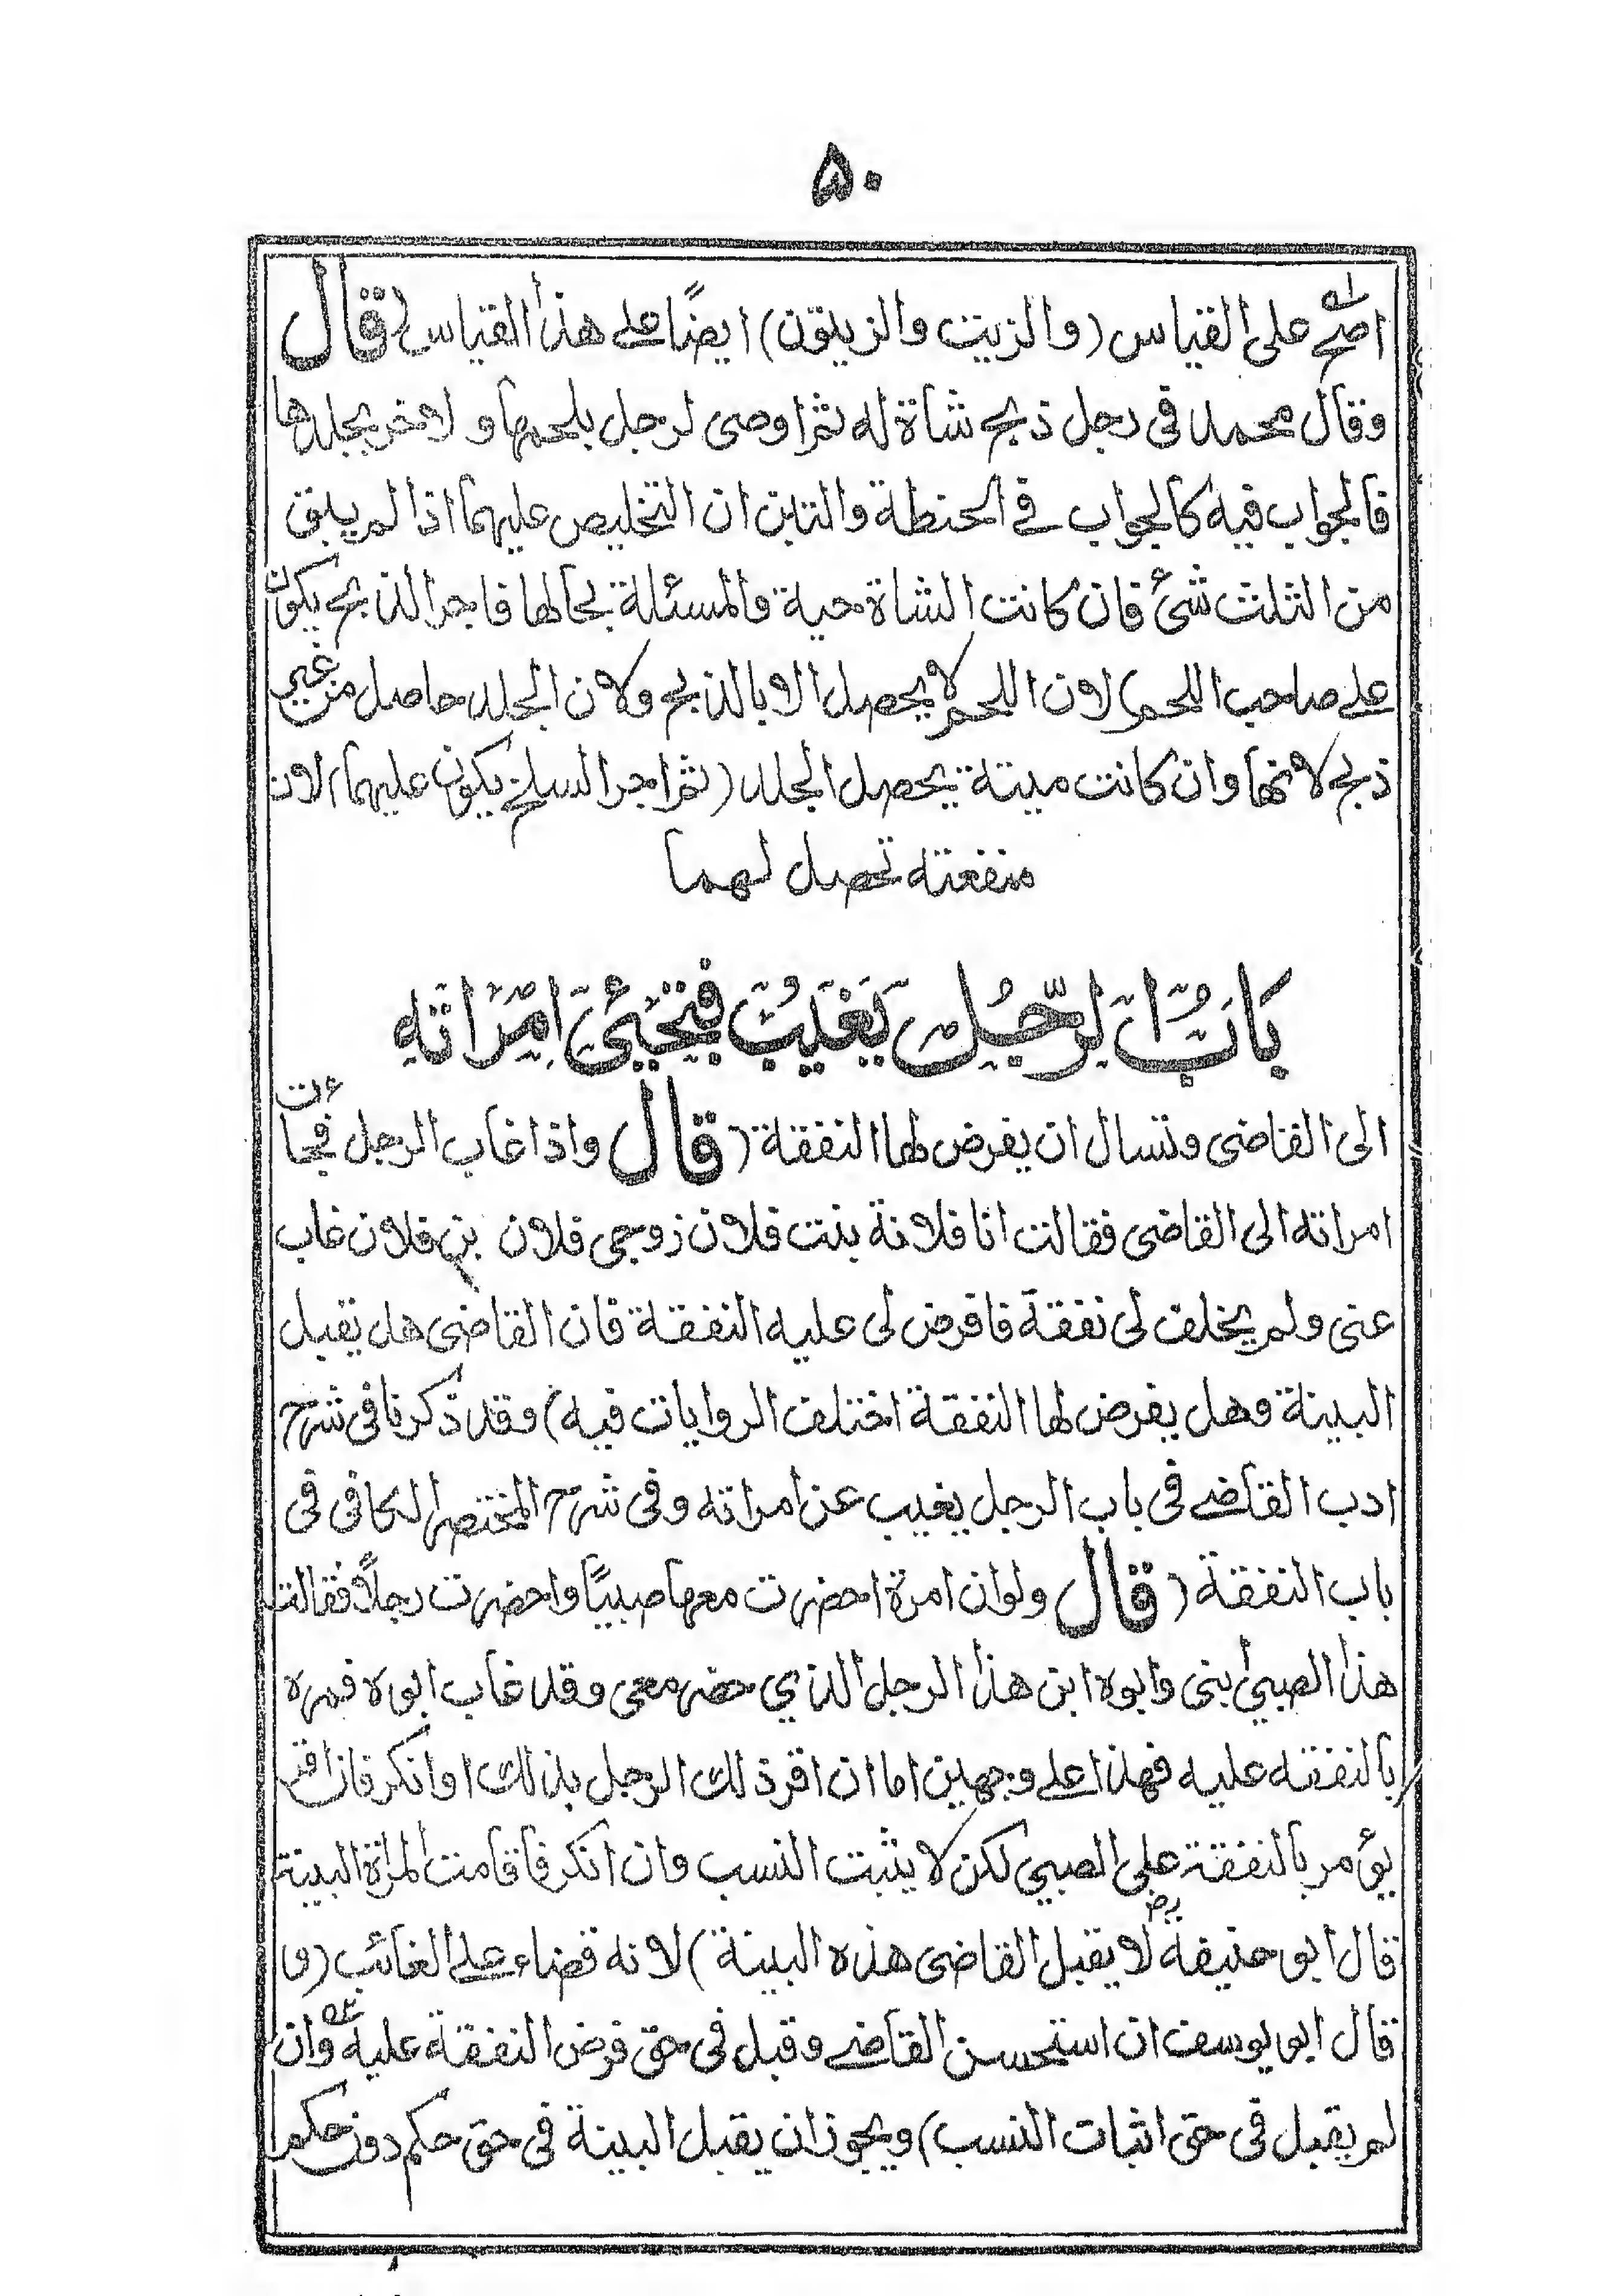 ۵۰
اصح على القياس (والزيت والزيتون) ايضًا على هذا القياس (قال
وقال محمد فى رجل ذبح شاة له ثم اوصى لرجل بلحمها ولاخر بجلدها
فالجواب فيه كالجواب فى الحنطة والتبن ان التخليص عليهما اذا لم يبق
من الثلث شئ فان كانت الشاة حية والمسئلة بحالها فاجر الذبح يكون
على صاحب اللحم) لان اللحم لا يحصل الا بالذبح ولان الجلد حاصل من غير
ذبح لانها وان كانت ميتة يحصل الجلد (ثم اجر السلخ يكون عليهما) لان
منفعته تحصل لهما
بَابُ الرّجُلِ يَغيبُ فتجيئَ امْرَاتهِ
الى القاضى وتسال ان يفرض لها النفقة (قال واذا غاب الرجل فجاءت
امراته الى القاضى فقالت انا فلانة بنت فلان زوجى فلان بن فلان غاب
عنى ولم يخلف لى نفقة فافرض لى عليه النفقة فان القاضى هل يقبل
البينة وهل يفرض لها النفقة اختلف الروايات فيه) وقد ذكرنا فى شرح
ادب القاضے فى باب الرجل يغيب عن امراته وفى شرح المختصر الكافى فى
باب النفقة (قال ولو ان امرة احضرت معها صبيًا واحضرت رجلًا فقالت
هذا الصبى ابنى وابوه ابن هذا الرجل الذي حضر معى وقد غاب ابوه فمره
بالنفقته عليه فهذا على وجهين اما ان اقر ذلك الرجل بذلك او انكر فان اقر
يؤمر بالنفقة على الصبى لكن لا يثبت النسب وان انكر فاقامت المراة البينة
قال ابو حنيفه رض لا يقبل القاضى هذه البينة) لانه قضاء على الغائب (و
قال ابو يوسف ان استحسن القاضے وقبل فى حق فرض النفقة عليه وان
لم يقبل فى حق اثبات النسب) ويجوز ان يقبل البينة فى حق حكم دون حكم